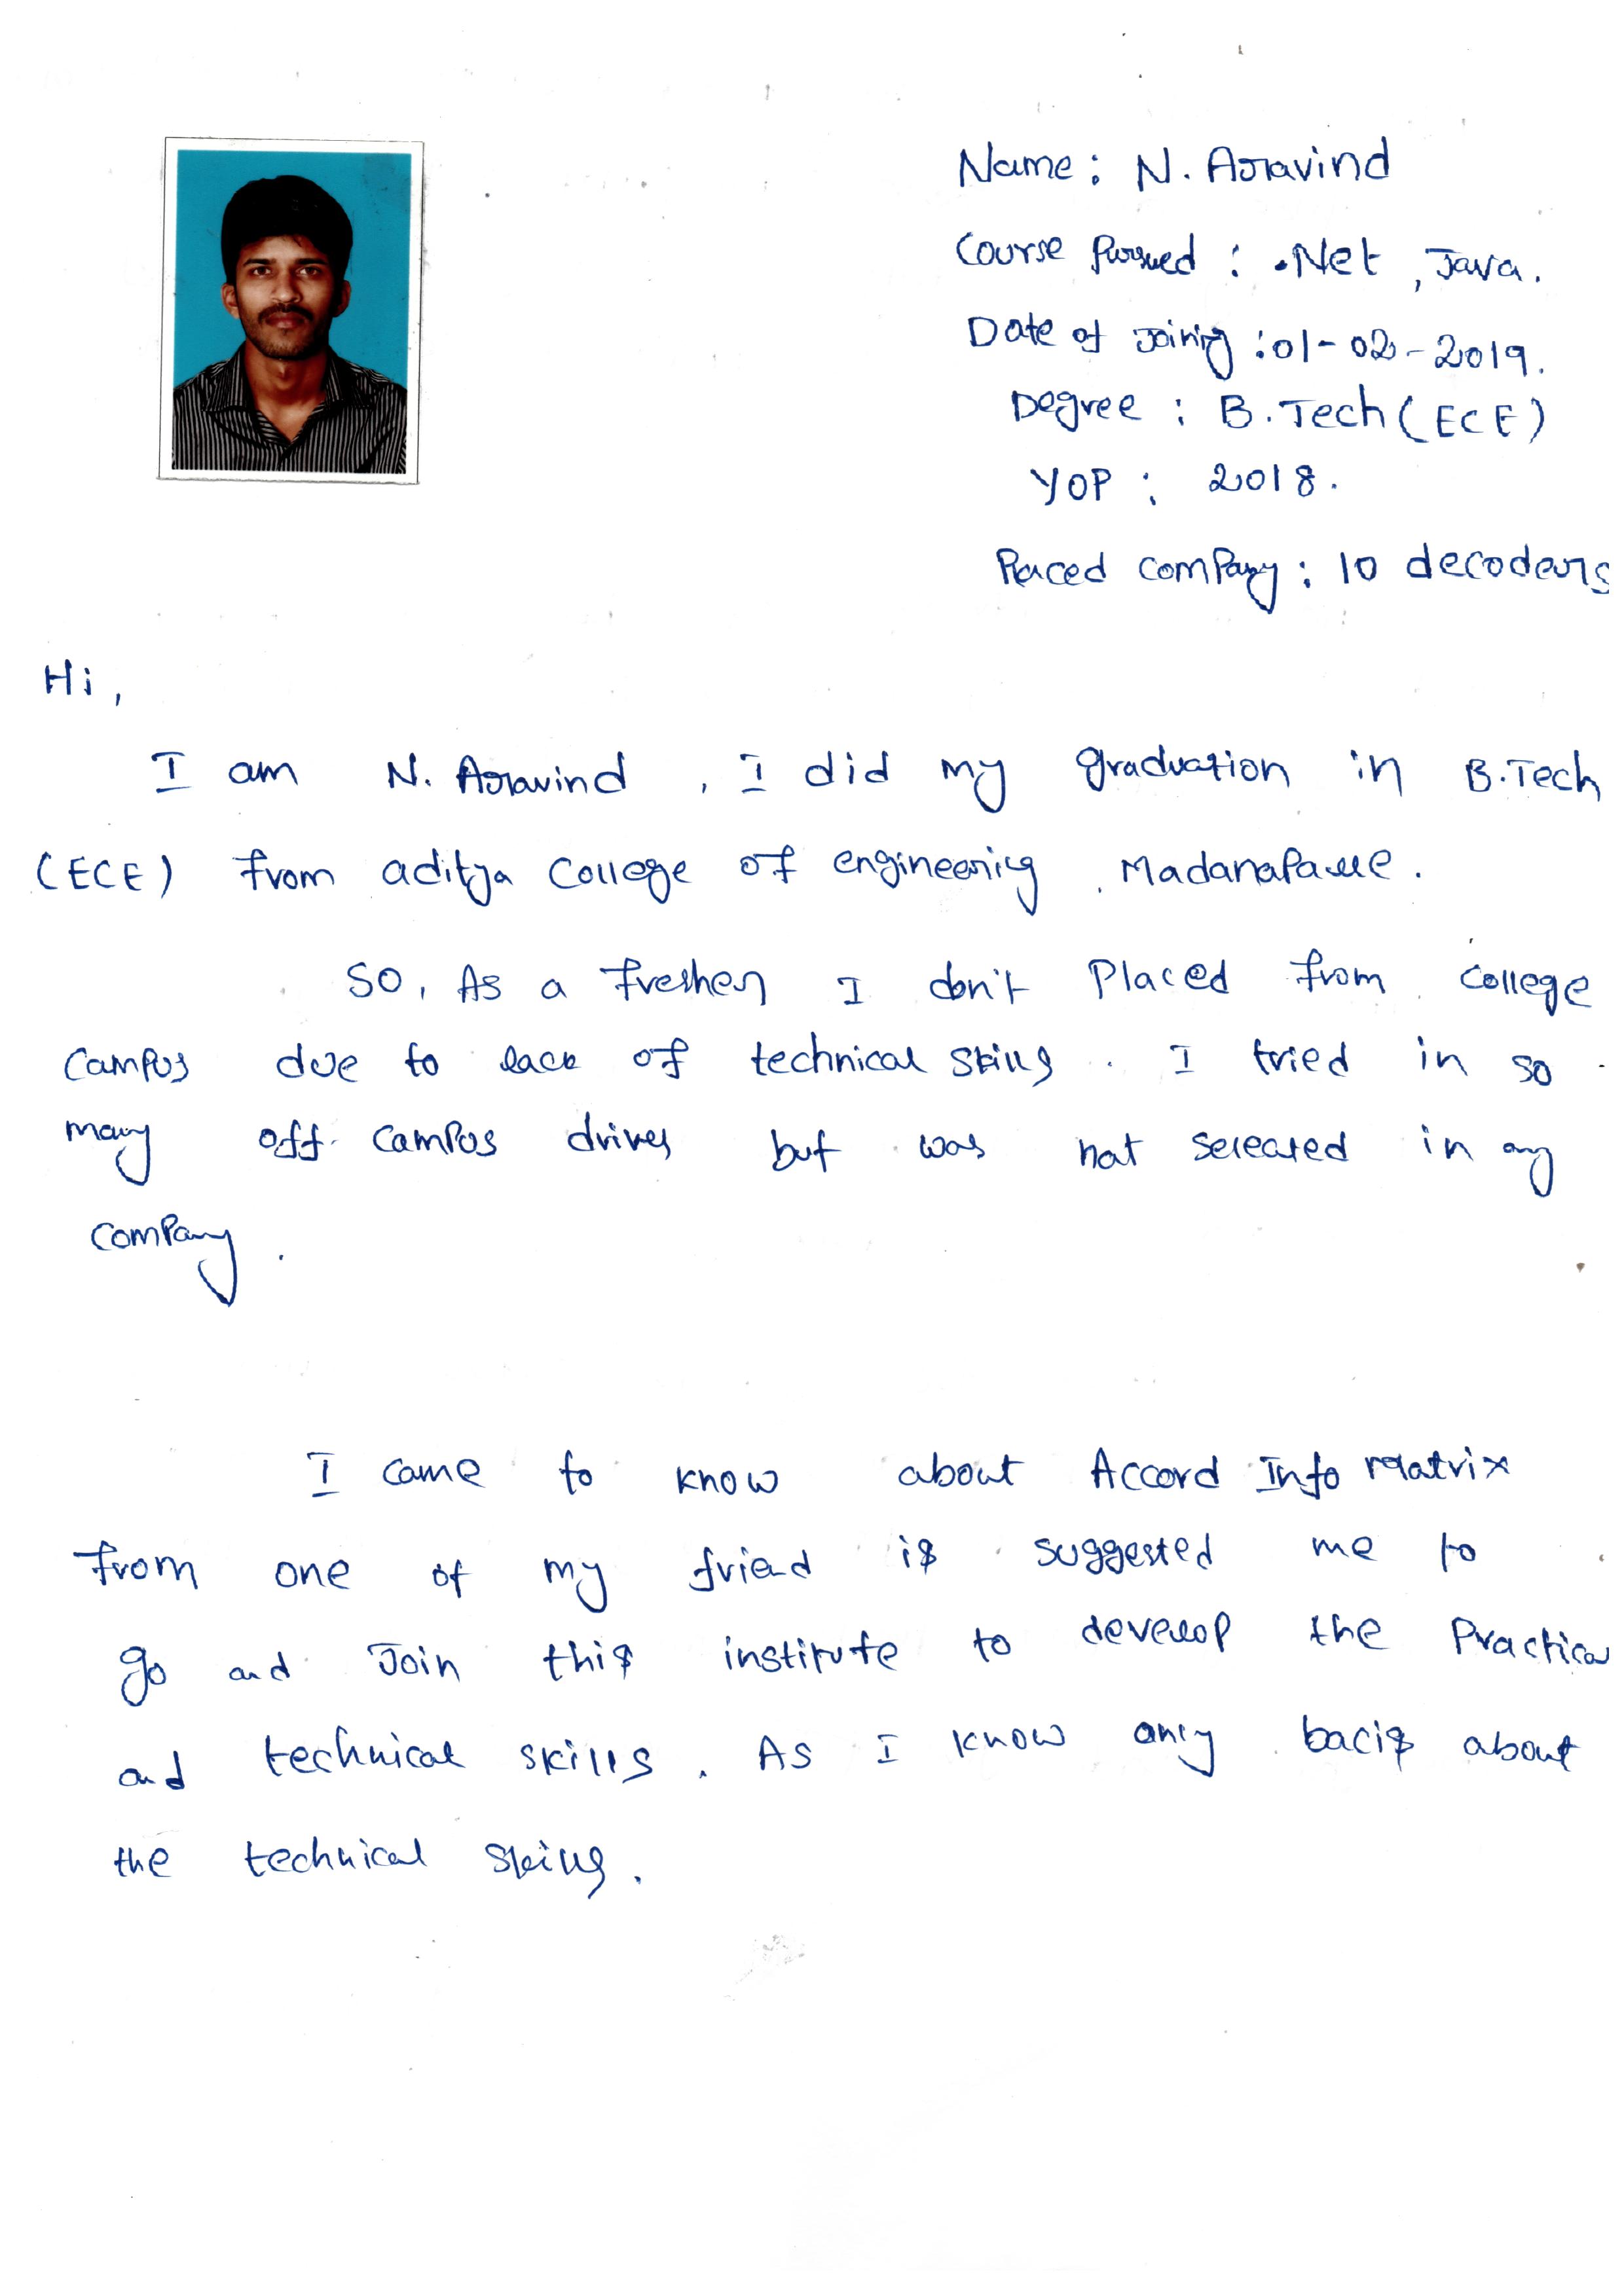 Name : N. Aravind
Course Pursued : .Net , Java.
Date of Joining : 01-02-2019.
Degree : B.Tech (ECE)
YOP : 2018.
Placed Company : 10 decoders
Hi,
I am N. Aravind , I did my graduation in B.Tech
(ECE) from aditya College of engineering , Madanapalle .
So, As a fresher I don't Placed from college
Campus due to lack of technical skills . I tried in so
many off campus drives but was not selected in any
Company .
I came to know about Accord Info matrix
from one of my friend is suggested me to
go and Join this institute to develop the Practical
and technical skills . As I know only bacis about
the technical skills .